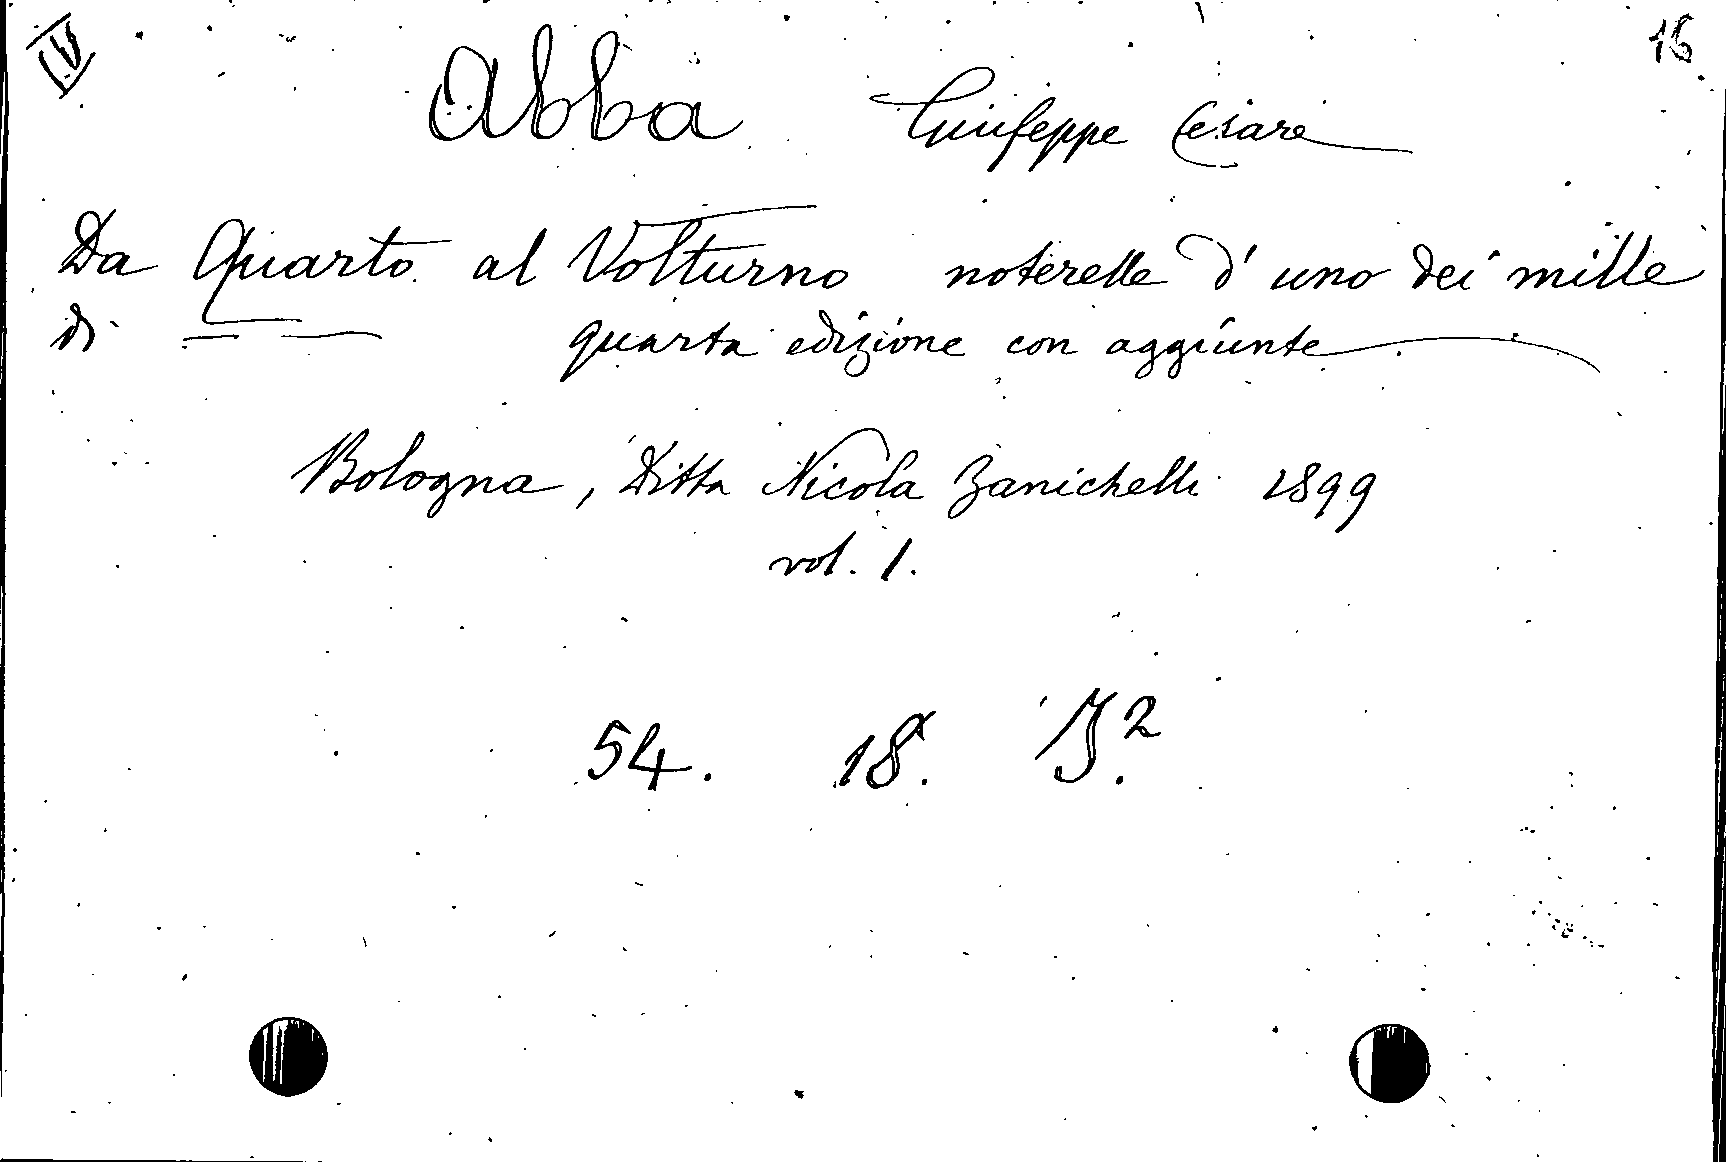 IV
16
Abba Giuseppe Cesare
Da Quarto al Volturno noterelle d' uno dei mille
di — — quarta edizione con aggiunte
Bologna, Ditta Nicola Zanichelli 1899
vol. 1.
54. 18. I.²